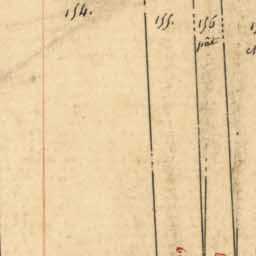 154.
155.
156
pât